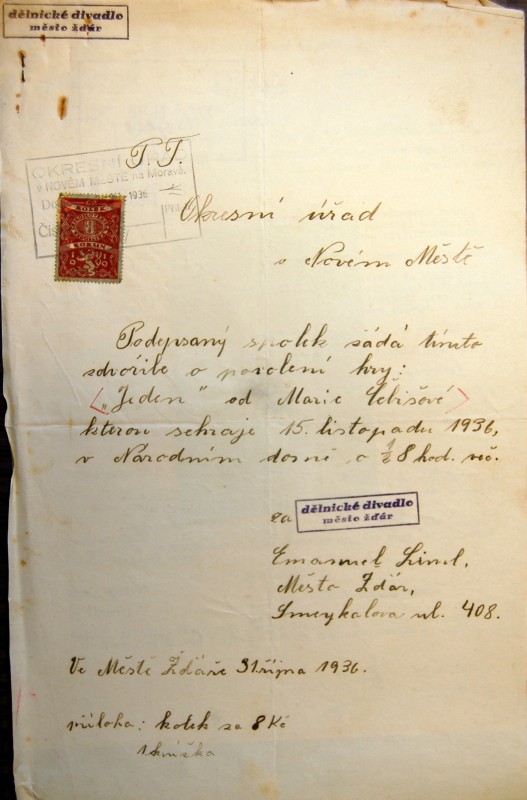 dělnické divadlo
město žďár
T. T.
OKRESNÍ ÚŘAD
v NOVÉM MĚSTĚ na Moravě.
1936
KOLEK
KORUN
1919
Okresní úřad
v Novém Městě
Podepsaný spolek žádá tímto
zdvořile o povolení hry:
„Jeden" od Marie
kterou sehraje 15. listopadu 1936,
v Národním domě o ½ 8 hod. več.
za
dělnické divadlo
město žďár
Emanuel
Město Žďár,
Smeykalova ul. 408.
Ve Městě Žďáře 31. října 1936.
příloha: kolek za 8 Kč
1 knížka